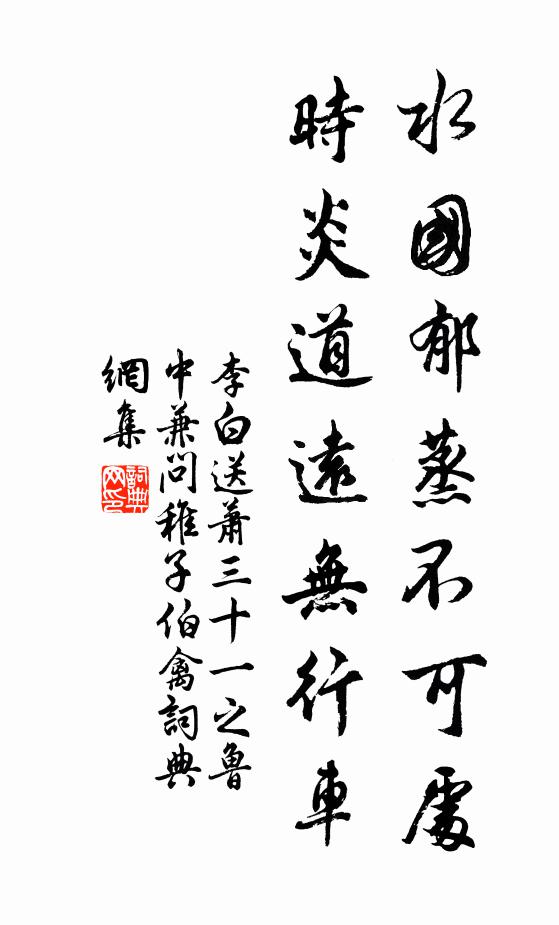 水國郁蒸不可處
時炎道遠無行車
李白送蕭三十一之魯
中兼問稚子伯禽詞典
網集
詞典
网印